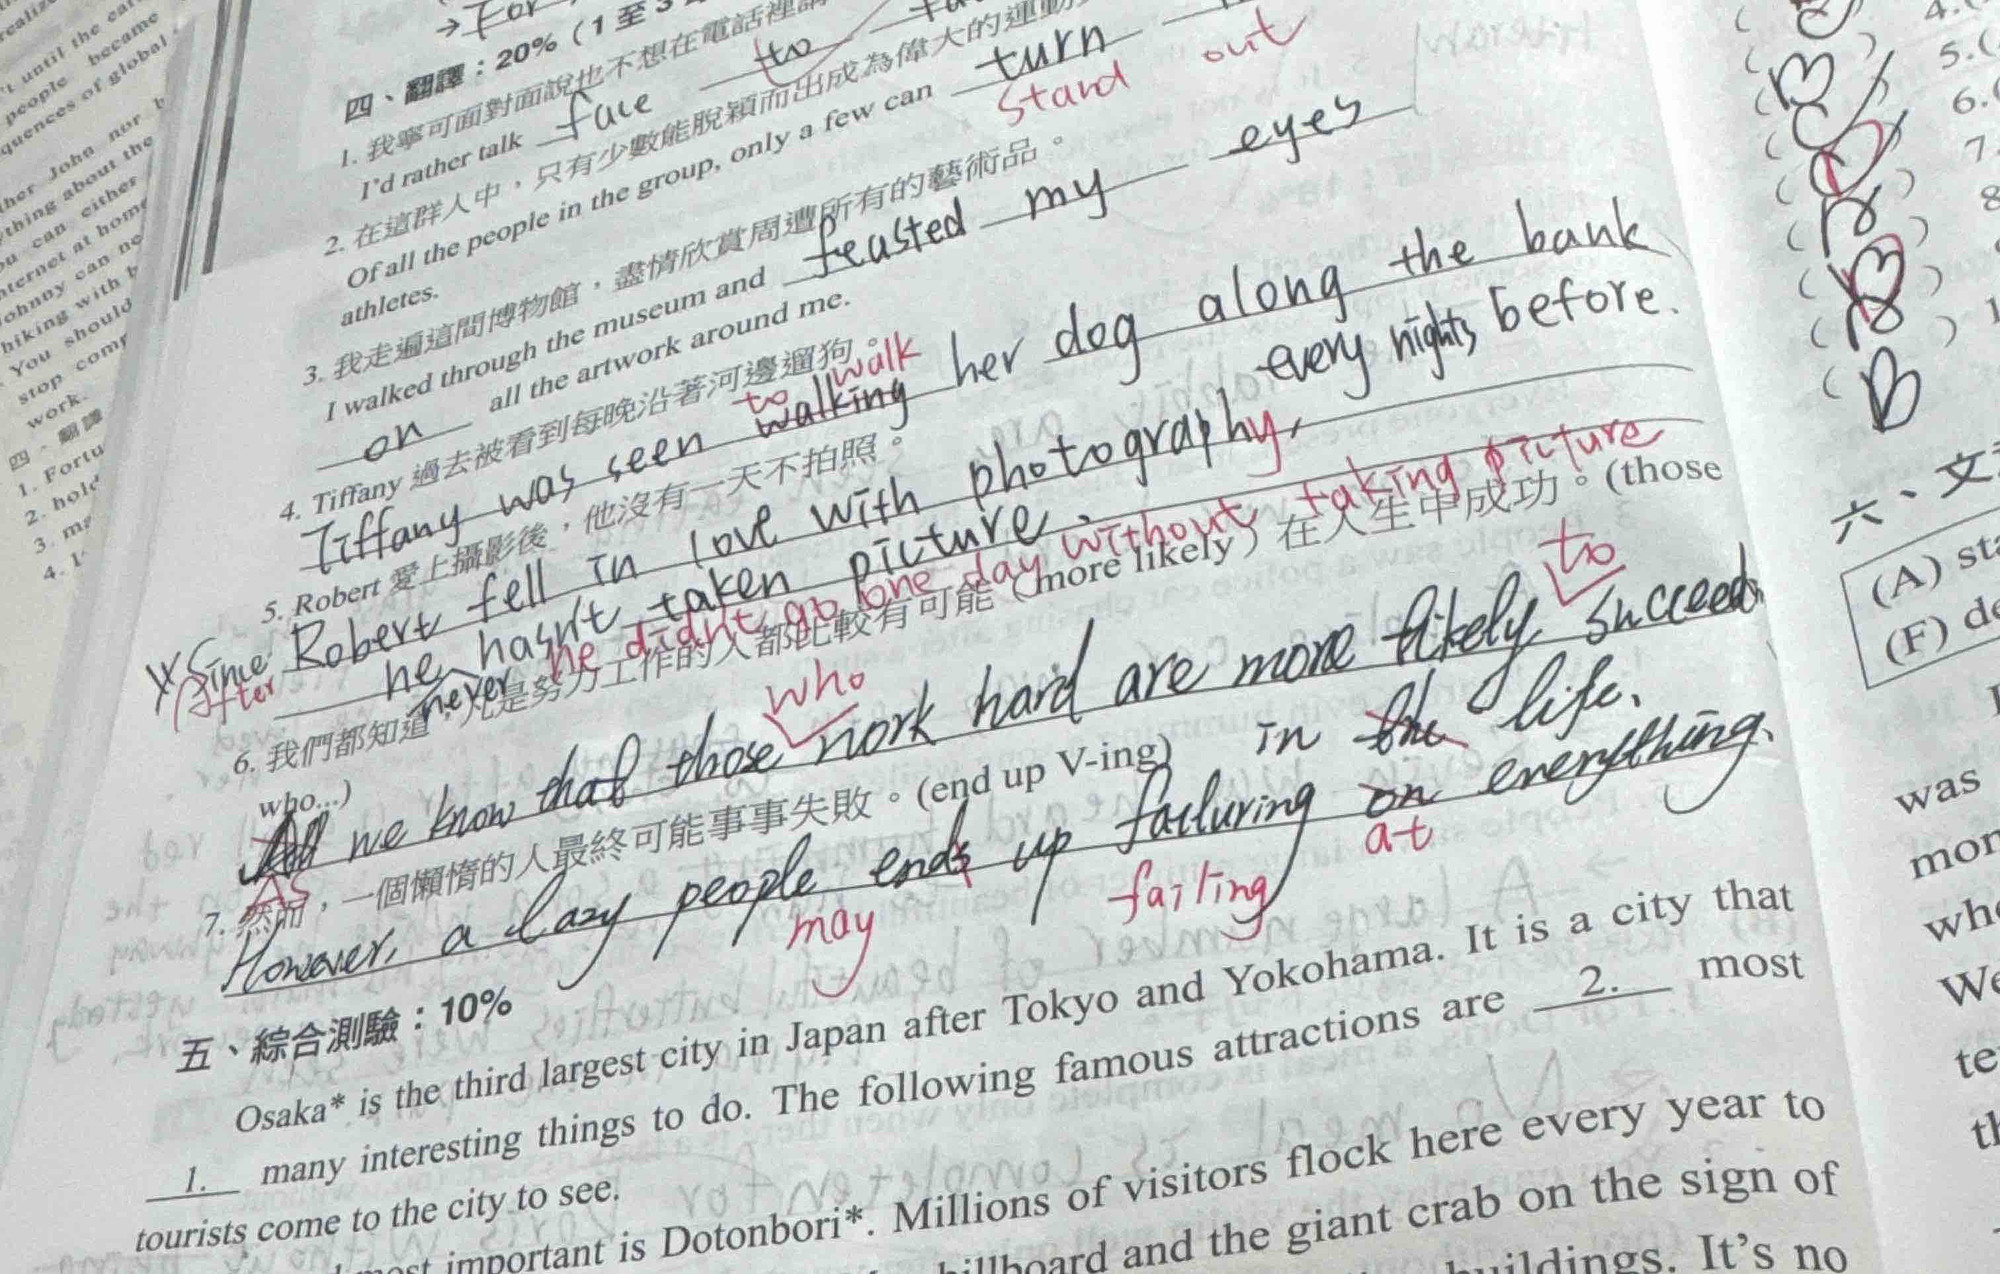 't until the ear
people became
quences of global
ther John nor
ything about the
u can either
ternet at home
ohnny can ne
hiking with
You should
stop comp
work.
四、翻譯
1. Fortu
2. hold
3. ma
四、翻譯：20%（1 至 3
1. 我寧可面對面說也不想在電話裡
I'd rather talk face to
2. 在這群人中，只有少數能脫穎而出成為偉大的運動
Of all the people in the group, only a few can turn
stand out
athletes.
3. 我走遍這間博物館，盡情欣賞周遭所有的藝術品。
I walked through the museum and feasted my eyes
on all the artwork around me.
4. Tiffany 過去被看到每晚沿著河邊遛狗。
to walk
Tiffany was seen walking her dog along the bank
every nights before.
5. Robert 愛上攝影後，他沒有一天不拍照。
Since Robert fell in love with photography,
After he hasn't taken picture.
never
he didn't go one day without taking picture
6. 我們都知道，凡是努力工作的人都比較有可能（more likely）在人生中成功。(those
who...)
who to
All we know that those work hard are more likely succeed
As
in the life.
7. 然而，一個懶惰的人最終可能事事失敗。(end up V-ing)
However, a lazy people ends up failuring on everything.
may failing at
五、綜合測驗：10%
Osaka* is the third largest city in Japan after Tokyo and Yokohama. It is a city that
1. many interesting things to do. The following famous attractions are 2. most
tourists come to the city to see.
most important is Dotonbori*. Millions of visitors flock here every year to
billboard and the giant crab on the sign of
buildings. It's no
4.
5.
6.
7.
8
B
六、文
(A) sta
(F) de
was
mor
wh
We
te
th